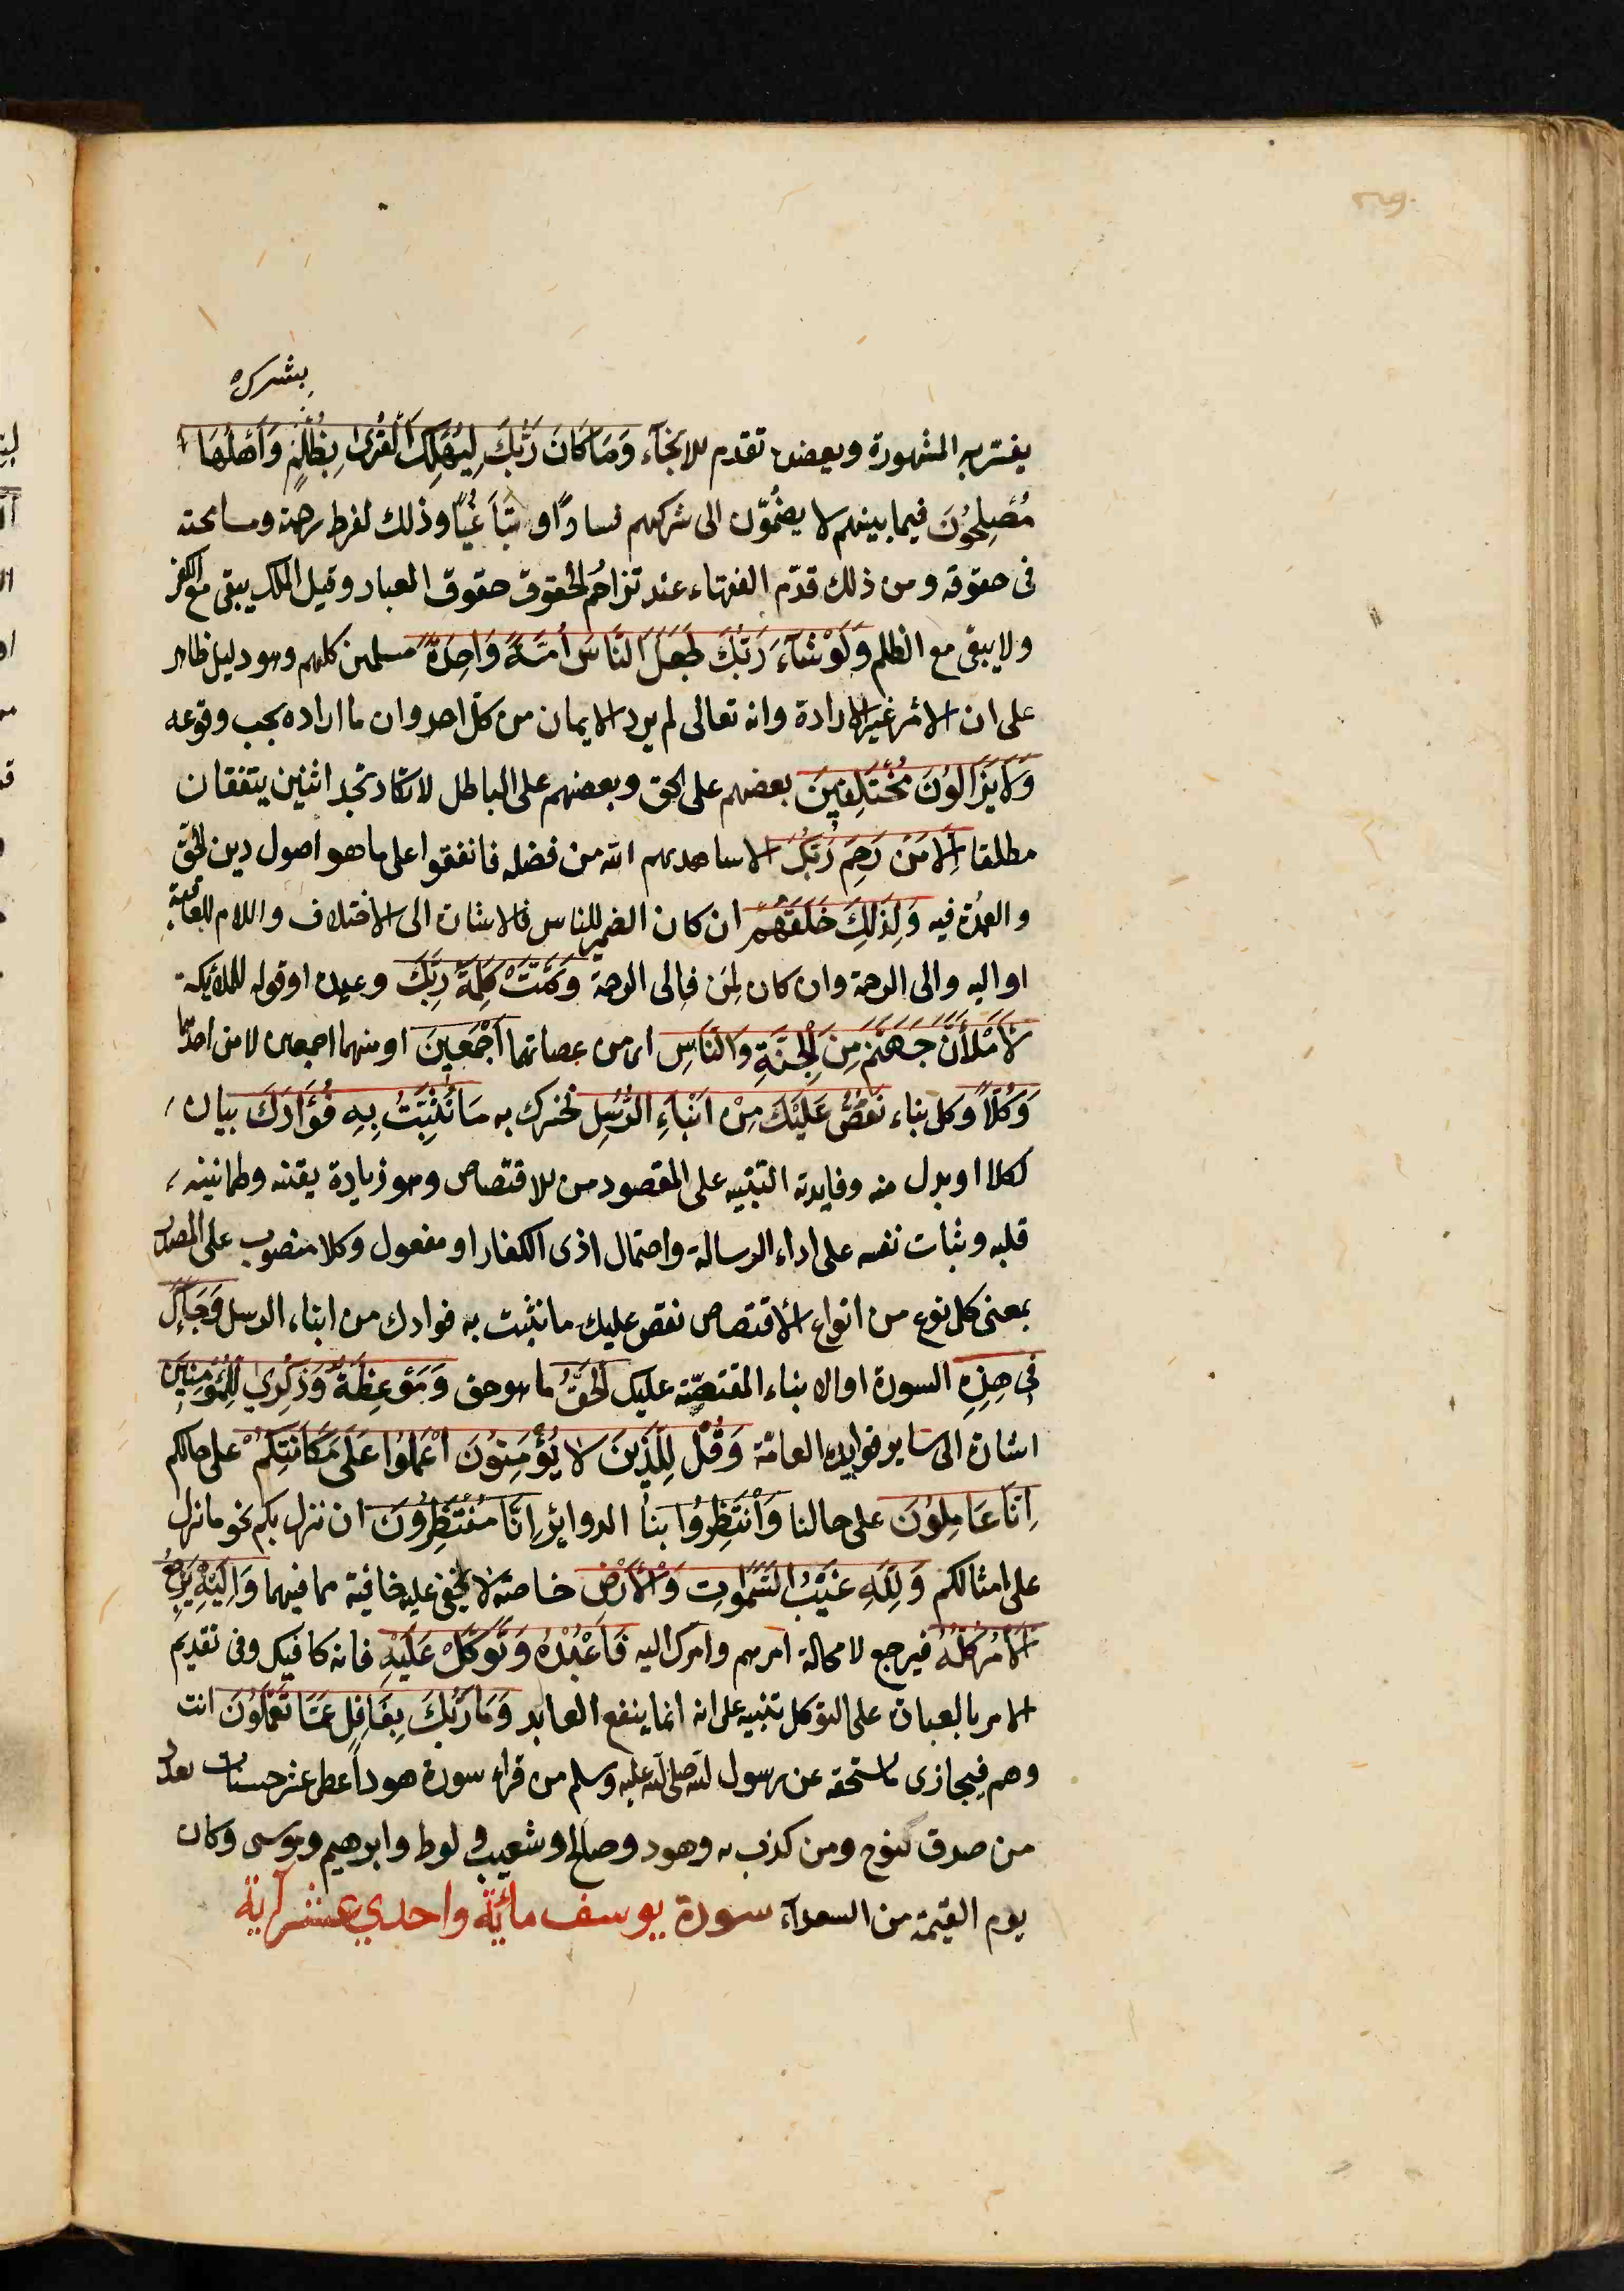 بشرك
يفسر به المشهورة ويعضده تقدم الانجآء وَمَا كَانَ رَبُّكَ لِيُهْلِكَ الْقُرٰى بِظُلْمٍ وَاَهْلُهَا
مُصْلِحُونَ فيما بينهم لا يضمّون الى شركهم فسادًا و تباغيًا وذلك لفرط رحمته ومسامحته
فى حقوقه ومن ذلك قدّم الفقهاء عند تزاحُم الحقوق حقوق العباد وقيل الملك يبقى مع الكفر
ولا يبقى مع الظلم وَلَوْ شَآءَ رَبُّكَ لَجَعَلَ النَّاسَ اُمَّةً وَاحِدَةً مسلمين كلهم وهو دليل ظاهر
على ان الامر غير الارادة وانه تعالى لم يرد الايمان من كلّ احد وان ما اراده يجب وقوعه
وَلَا يَزَالُونَ مُخْتَلِفِينَ بعضهم على الحق وبعضهم على الباطل لا تكاد تجد اثنين يتفقان
مطلقا اِلَّا مَنْ رَحِمَ رَبُّكَ الا ناسا هديهم الله من فضله فاتفقوا على ما هو اصول دين الحقّ
والعمدة فيه وَلِذٰلِكَ خَلَقَهُمْ ان كان الضمير للناس فالاشارة الى الاختلاف واللام للعاقبة
او اليه والى الرحمة وان كان لمَن فالى الرحمة وَتَمَّتْ كَلِمَةُ رَبِّكَ وعيده او قوله للملائكة
لَاَمْلَأَنَّ جَهَنَّمَ مِنَ الْجِنَّةِ وَالنَّاسِ اى من عصاتهما اَجْمَعِينَ او منهما اجمعين لا من احدهما
وَكُلًّا وكل نباء نَقُصُّ عَلَيْكَ مِنْ اَنْبَاءِ الرُّسُلِ نخبرك به مَا نُثَبِّتُ بِهِ فُؤَادَكَ بيان
لكلا او بدل منه وفايدته التنبيه على المقصود من الاقتصاص وهو زيادة يقنه وطمانينة
قلبه وثبات نفسه على اداء الرسالة واحتمال اذى الكفار او مفعول وكلا منصوب على المصدر
بمعنى كل نوع من انواع الاقتصاص نقص عليك ما نثبت به فوادك من انباء الرسل وَجَاءَكَ
فِى هٰذِهِ السورة او الانباء المقتصّة عليك الْحَقُّ ما هو حق وَمَوْعِظَةٌ وَذِكْرٰى لِلْمُؤْمِنِينَ
اشارة الى ساير فوايده العامّة وَقُلْ لِلَّذِينَ لَا يُؤْمِنُونَ اعْمَلُوا عَلٰى مَكَانَتِكُمْ على حالكم
اِنَّا عَامِلُونَ على حالنا وَانْتَظِرُوا بنا الدوائر اِنَّا مُنْتَظِرُونَ ان ننزل بكم نحو ما نزل
على امثالكم وَلِلّٰهِ غَيْبُ السَّمٰوَاتِ وَالْاَرْضِ خاصة لا يخفى عليه خافية مما فيهما وَاِلَيْهِ يُرْجَعُ
الْاَمْرُ كُلُّهُ فيرجع لا محالة امرهم وامرك اليه فَاعْبُدْهُ وَتَوَكَّلْ عَلَيْهِ فانه كافيك وفى تقديم
الامر بالعبادة على التوكل تنبيه على انه انما ينفع العابد وَمَا رَبُّكَ بِغَافِلٍ عَمَّا تَعْمَلُونَ انت
وهم فيجازى ما تستحقه عن رسول الله صلى الله عليه وسلم من قراء سورة هود اعطى عشر حسنات بعدد
من صدق بنوح ومن كذب به وهود وصالح وشعيب ولوط وابرهيم وموسى وكان
يوم القيمة من السعدآء سورة يوسف مائة واحدي عشر آية